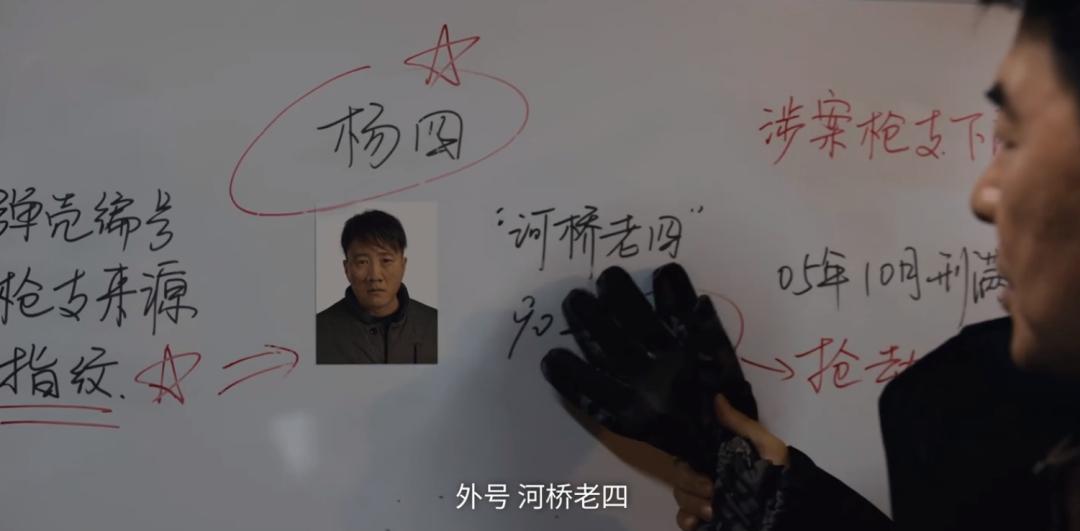 杨四
弹壳编号
枪支来源
指纹.
“河桥老四”
90
涉案枪支下
05年10月刑满
抢劫
外号 河桥老四